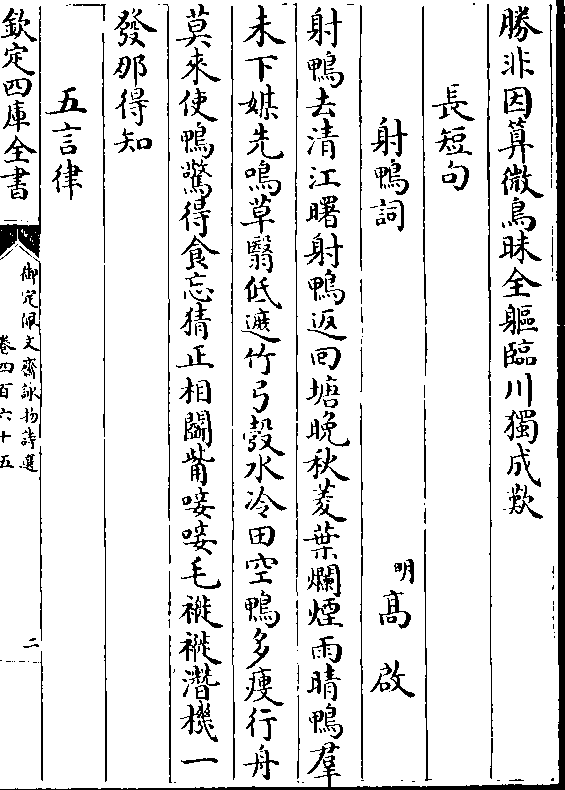 勝非因算微鳥昧全軀臨川獨成歎
長短句
射鴨詞
明髙啟
射鴨去清江曙射鴨返回塘晚秋菱葉爛煙雨晴鴨羣
未下媒先鳴草翳低遮竹弓彀水冷田空鴨多瘦行舟
莫來使鴨驚得食忘猜正相鬭觜唼唼毛褷褷潛機一
發那得知
五言律
欽定四庫全書
御定佩文齋詠物詩選
卷四百六十五
二